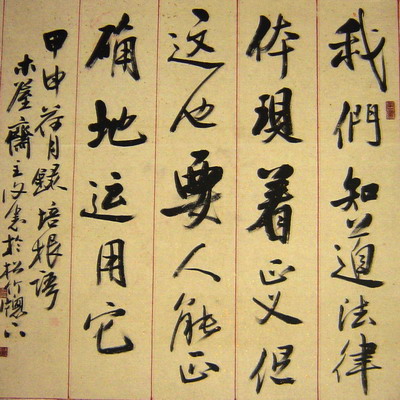 我們知道法律
体現着正义但
这也要人能正
确地运用它
甲申荷月録培根语
木屋齋主於松竹下